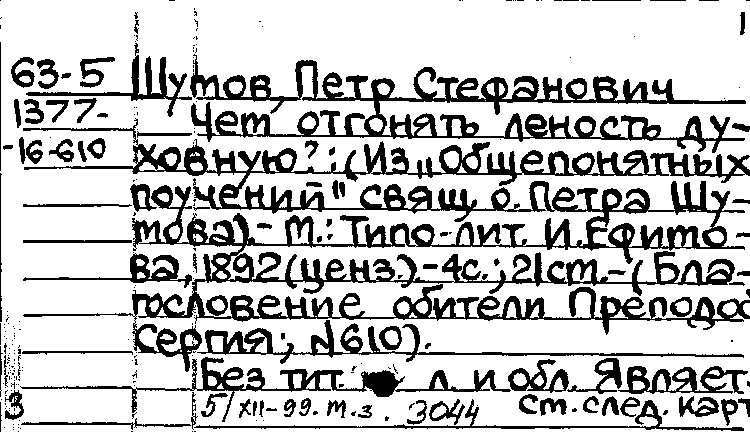 1
63-5 Шутов, Петр Стефанович
1377- Чем отгонять леность ду-
-16-610 ховную? : (Из „Общепонятных
поучений" свящ. о. Петра Шу-
това).- М.: Типо-лит. И.Ефимо-
ва, 1892 (ценз.).-4с.; 21см.-(Бла-
гословение обители Преподоб
Сергия; №610).
Без тит. л. и обл. Являет.
3 5/XII-99. т.з. 3044 см. след. карт